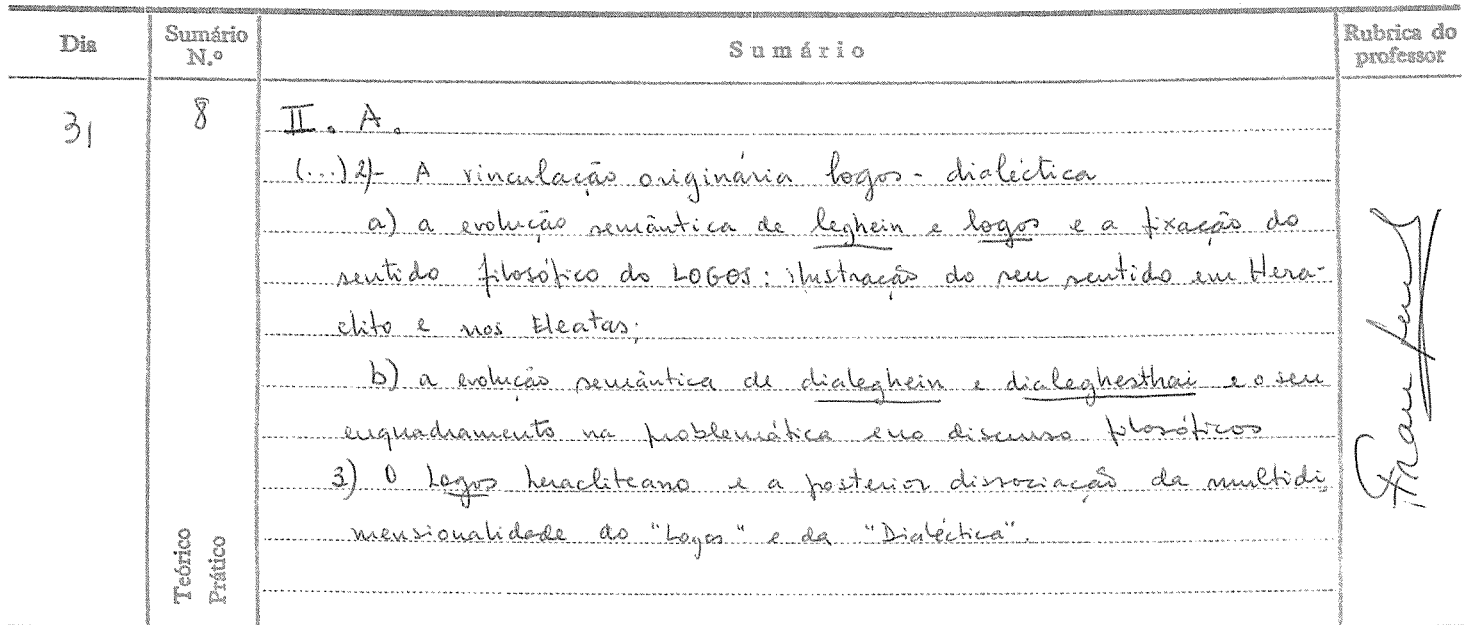 Dia
Sumário N.º
Sumário
Rubrica do professor
31
8
II. A.
(...) 2)- A vinculação originária logos - dialéctica
a) a evolução semântica de leghein e logos e a fixação do
sentido filosófico do LOGOS: ilustração do seu sentido em Hera-
clito e nos Eleatas;
b) a evolução semântica de dialeghein e dialeghesthai e o seu
enquadramento na problemática e no discurso filosóficos
3) O Logos heracliteano e a posterior dissociação da multidi
mensionalidade do "Logos" e da "Dialéctica".
Teórico
Prático